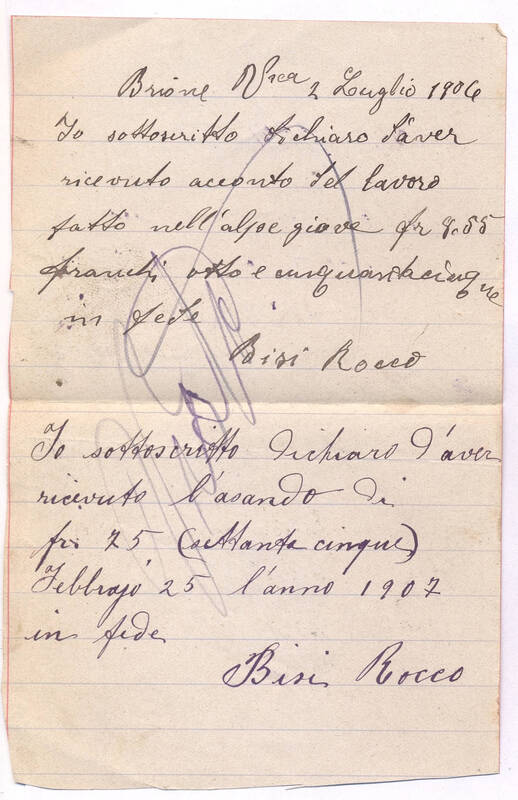 Brione Vrca 2 Luglio 1906
Io sottoscritto dichiaro d'aver
ricevuto aconto del lavoro
fatto nell'alpe giove fr 8.55
franchi otto e cinquantacinque
in fede
Bisi Rocco
Io sottoscritto dichiaro d'aver
ricevuto l'asando di
fr. 75 (settanta cinque)
Febbrajo 25 l'anno 1907
in fede
Bisi Rocco